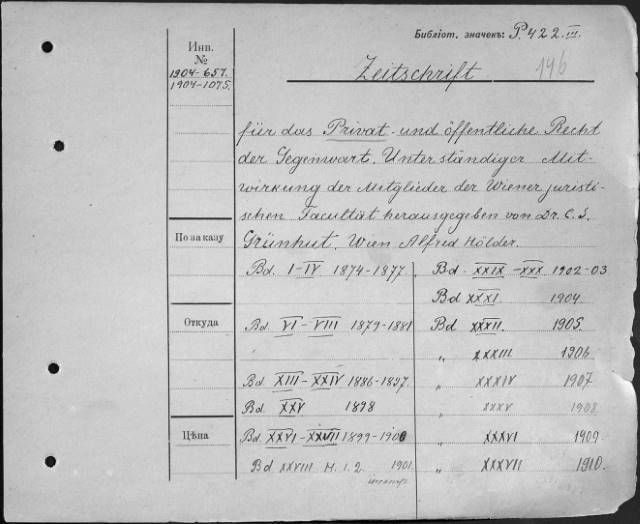 Библіот. значекъ: P.422.III.
Инв.
№
1904-657.
1904-1075.
Zeitschrift 146
für das Privat- und öffentliche Recht
der Gegenwart. Unter ständiger Mit-
wirkung der Mitglieder der Wiener juristi-
schen Facultät herausgegeben von Dr. C. S.
По заказу
Grünhut, Wien Alfred Hölder.
Bd. I-IV 1874-1877
Bd. XXIX-XXX 1902-03
Bd XXXI. 1904.
Откуда
Bd. VI-VIII 1879-1881
Bd XXXII. 1905.
„ XXXIII 1906
Bd. XIII-XXIV 1886-1897
„ XXXIV 1907
Bd. XXV 1898
„ XXXV 1908.
Цѣна
Bd. XXVI-XXVII 1899-1900
„ XXXVI 1909.
Bd XXVIII H. 1. 2. 1901.
„ XXXVII 1910.